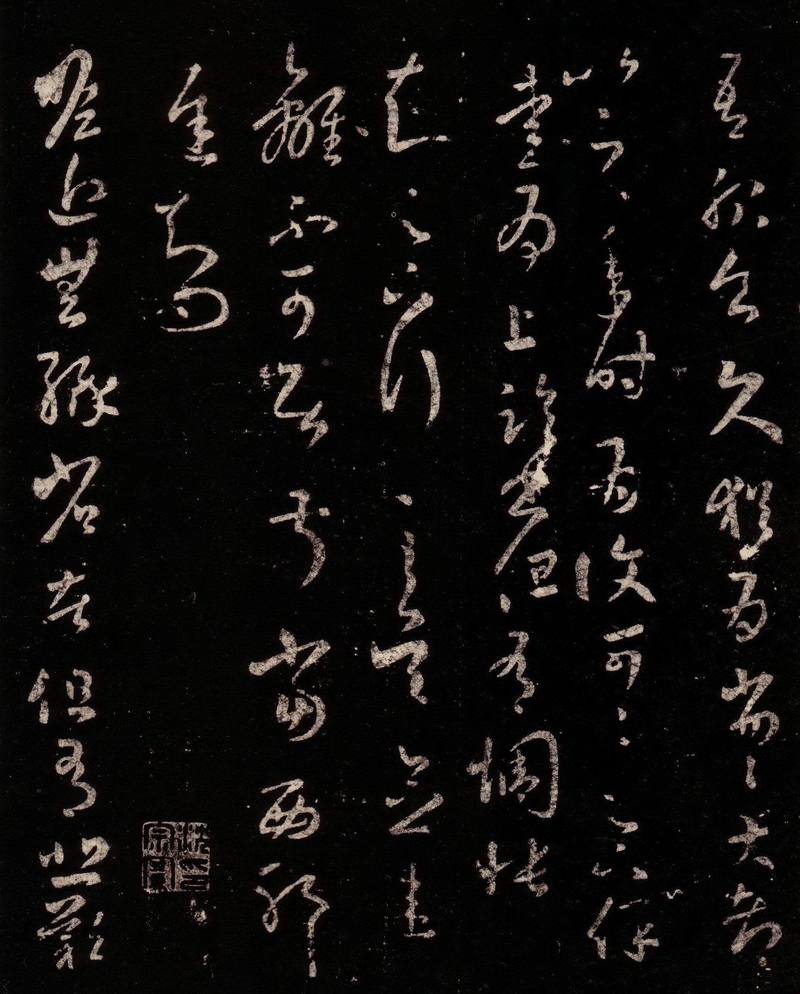 吾服食久猶為劣劣大都
比之年時為復可可足下保
愛為上臨書但有惆悵
知足下行至吳念違
離不可居叔當西耶
遲知問
瞻近無緣省苦但有悲歎